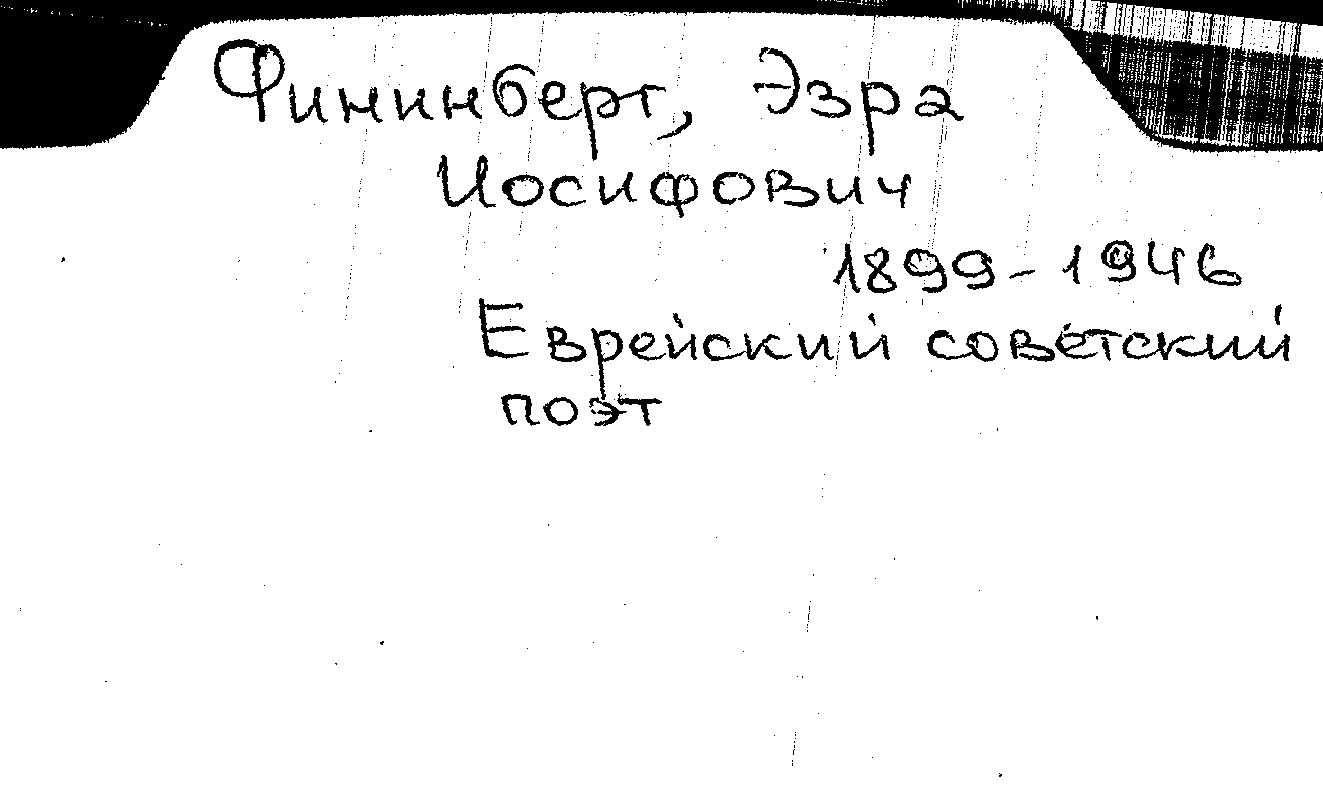 Фининберг, Эзра
Иосифович
1899-1946
Еврейский советский
поэт